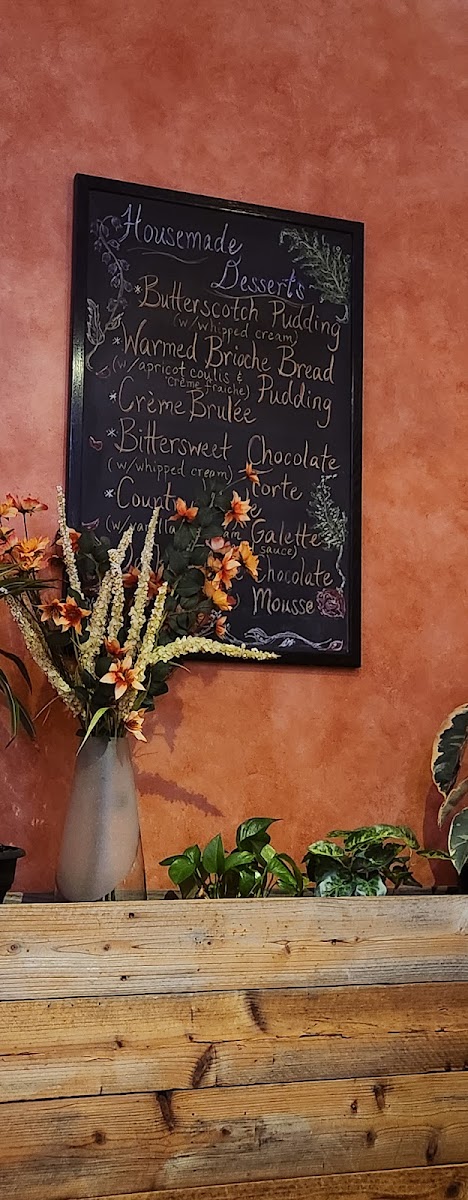 Housemade
Desserts
*Butterscotch Pudding
(w/whipped cream)
*Warmed Brioche Bread
(w/apricot coulis &
crème fraîche) Pudding
*Crème Brulée
*Bittersweet Chocolate
(w/whipped cream) Torte
*Count
(w/vanilla Galette
sauce)
Chocolate
Mousse